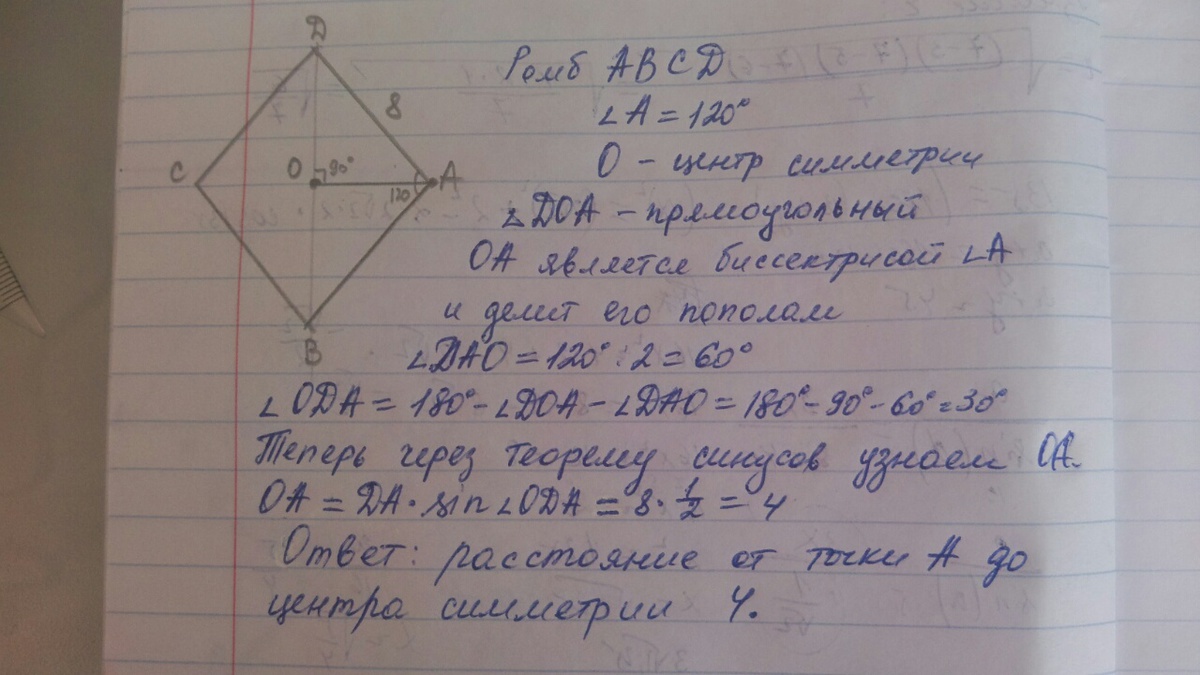 D
Ромб ABCD
8
∠A = 120°
C
O
90°
120
A
O - центр симметрии
∠DOA - прямоугольный
OA является биссектрисой ∠A
и делит его пополам
B
∠DAO = 120° : 2 = 60°
∠ODA = 180° - ∠DOA - ∠DAO = 180° - 90° - 60° = 30°
Теперь через теорему синусов узнаем OA.
OA = DA · sin ∠ODA = 8 · 1/2 = 4
Ответ: расстояние от точки A до
центра симметрии 4.